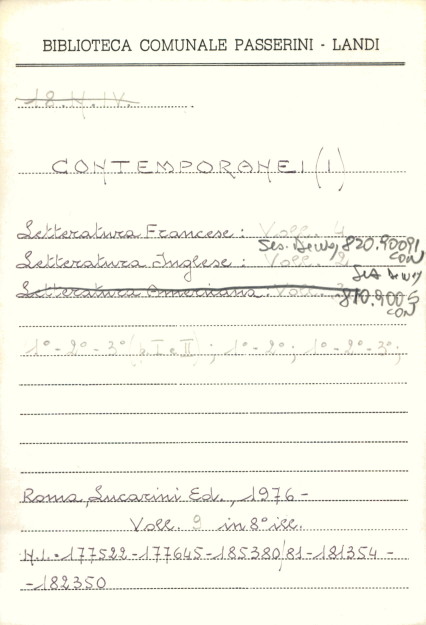 BIBLIOTECA COMUNALE PASSERINI - LANDI
18.N.IV.
CONTEMPORANEI (I)
Letteratura Francese: Voll. 4
Ses. Dewey 820.90091
CON
Letteratura Inglese: Voll. 2
Ses Dewey
Letteratura Americana: Voll. 3
810.9005
CON
1° - 2° - 3° (p. I e II) ; 1° - 2° ; 1° - 2° - 3° ;
Roma, Lucarini Ed., 1976 -
Voll. 9 in 8° ill.
N.I. 177522 - 177645 - 185380/81 - 181354 -
- 182350